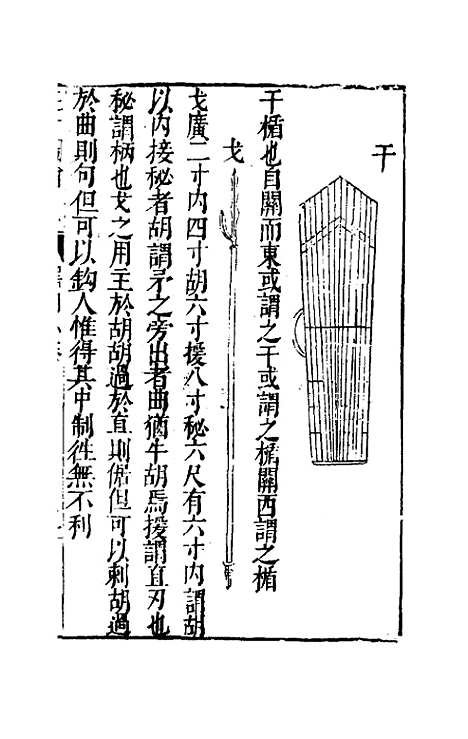 干
干楯也自關而東或謂之干或謂之楯關西謂之楯
戈
戈廣二寸内四寸胡六寸援八寸秘六尺有六寸内謂胡
以内接秘者胡謂矛之旁出者曲猶牛胡焉援謂直刃也
秘謂柄也戈之用主於胡胡過於直則倨但可以刺胡過
於曲則句但可以鈎人惟得其中制徃無不利